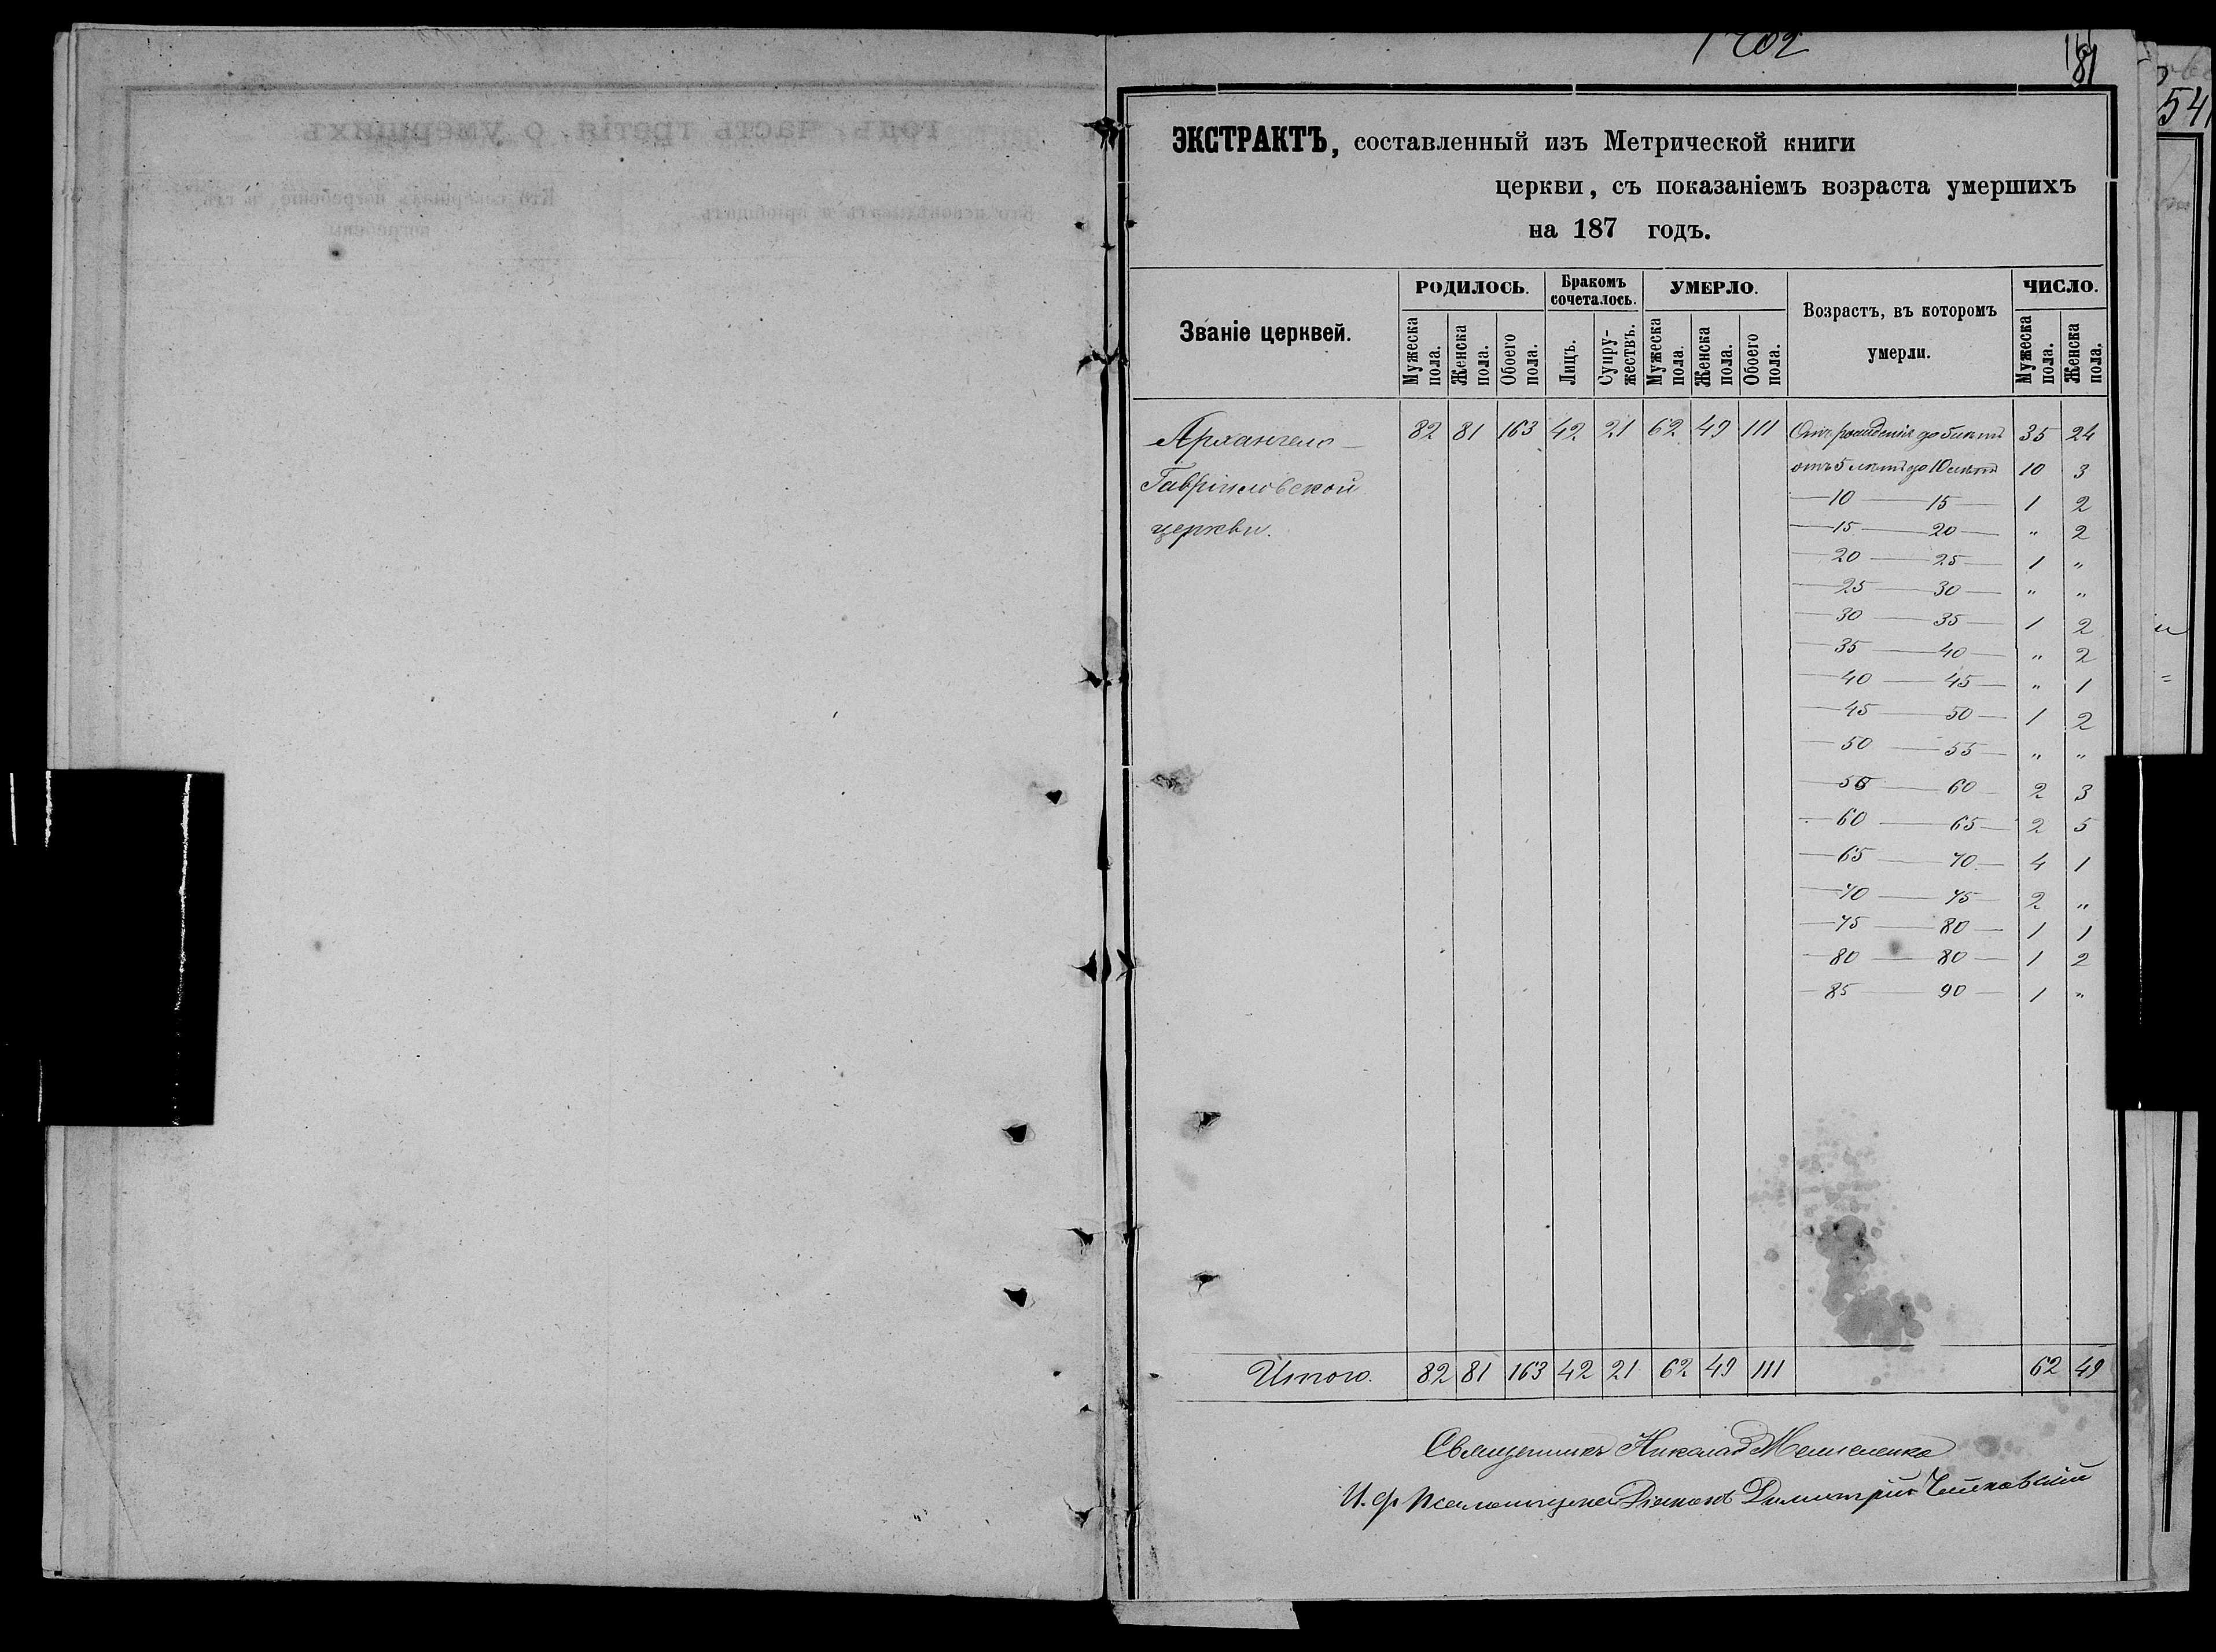 годъ, часть третія, о умершихъ
Кто исповѣдывалъ и пріобщалъ. Кто совершалъ погребеніе, и гдѣ погребены
1202
81
541
ЭКСТРАКТЪ, составленный изъ Метрической книги
церкви, съ показаніемъ возраста умершихъ
на 187 годъ.
Званіе церквей. РОДИЛОСЬ. Бракомъ сочеталось. УМЕРЛО. Возрастъ, въ которомъ умерли. ЧИСЛО.
Мужеска пола. Женска пола. Обоего пола. Лицъ. Супружествъ. Мужеска пола. Женска пола. Обоего пола. Мужеска пола. Женска пола.
Архангело- 82 81 163 42 21 62 49 111 Отъ рожденія до 5 лѣтъ 35 24
Гавріиловской отъ 5 лѣтъ до 10 лѣтъ 10 3
церкви. — 10 — 15 — 1 2
— 15 — 20 — " 2
— 20 — 25 — 1 "
— 25 — 30 — " "
— 30 — 35 — 1 2
— 35 — 40 — " 2
— 40 — 45 — " 1
— 45 — 50 — 1 2
— 50 — 55 — " "
— 55 — 60 — 2 3
— 60 — 65 — 2 5
— 65 — 70 — 4 1
— 70 — 75 — 2 "
— 75 — 80 — 1 1
— 80 — 80 — 1 2
— 85 — 90 — 1 "
Итого. 82 81 163 42 21 62 49 111 62 49
Священникъ Николай
И. ф. Псаломщика Діаконъ Димитрій